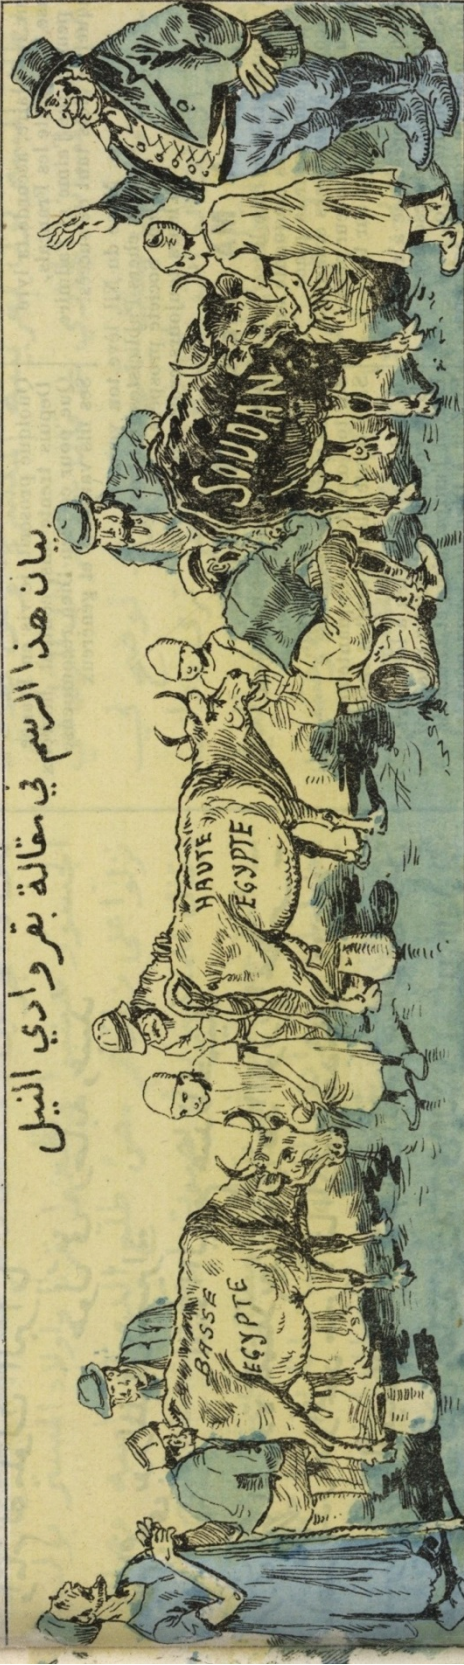 بيان هذا الرسم في مقالة بقر وادي النيل
SOUDAN
HAUTE
EGYPTE
BASSE
EGYPTE